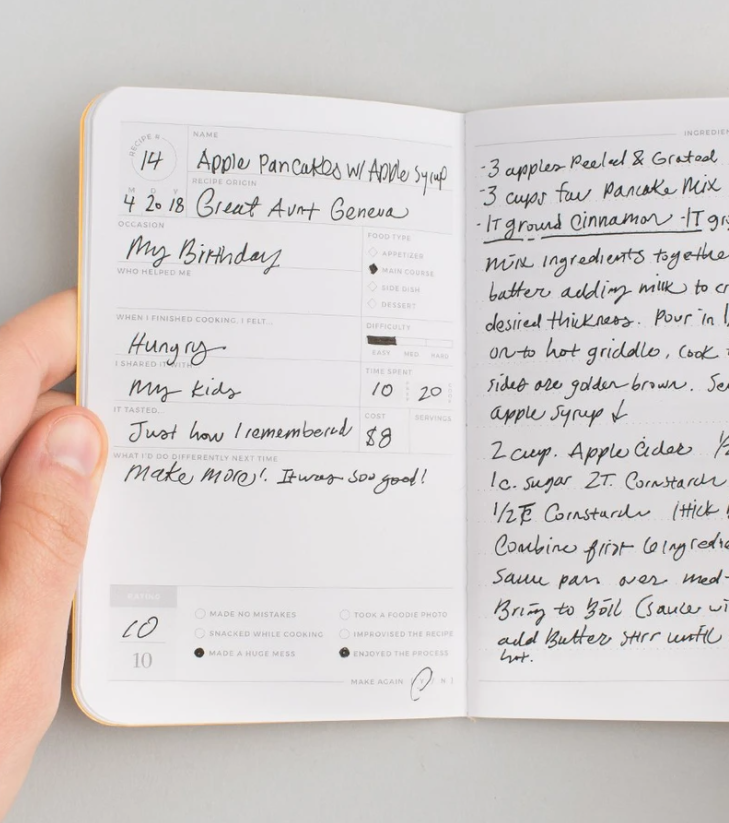 RECIPE #
14
NAME
Apple Pancakes w/ Apple Syrup
RECIPE ORIGIN
M D Y
4 20 18 Great Aunt Geneva
OCCASION
My Birthday
WHO HELPED ME
FOOD TYPE
APPETIZER
MAIN COURSE
SIDE DISH
DESSERT
WHEN I FINISHED COOKING, I FELT...
Hungry
DIFFICULTY
EASY MED HARD
I SHARED IT WITH
My Kids
TIME SPENT
10 20
IT TASTED...
Just how I remembered
COST
$8
SERVINGS
WHAT I'D DO DIFFERENTLY NEXT TIME
Make more! It was soo good!
RATING
10
10
MADE NO MISTAKES
SNACKED WHILE COOKING
MADE A HUGE MESS
TOOK A FOODIE PHOTO
IMPROVISED THE RECIPE
ENJOYED THE PROCESS
MAKE AGAIN [ Y / N ]
INGREDIE
-3 apples Peeled & Grated
-3 cups fav Pancake Mix
-1T ground Cinnamon -1T
mix ingredients together
batter adding milk to
desired thickness. Pour in
on to hot griddle, Cook
sides are golden brown.
apple syrup ↓
2 cup. Apple Cider 1/2
1c. sugar 2T. Cornstarch
1/2 Cornstarch (thick
Combine first 6 ingredie
Sauce pan over med-
Bring to Boil (sauce
add Butter stir until
hot.